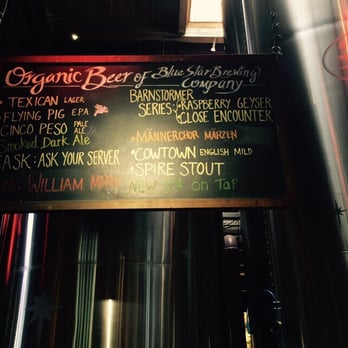 Organic Beer of Blue Star Brewing Company
• TEXICAN LAGER
FLYING PIG EPA
CINCO PESO PALE ALE
Smoked Dark Ale
CASK: ASK YOUR SERVER
KING WILLIAM
BARNSTORMER SERIES: • RASPBERRY GEYSER
• CLOSE ENCOUNTER
• MÄNNERCHOR MÄRZEN
• COWTOWN ENGLISH MILD
• SPIRE STOUT
ON TAP